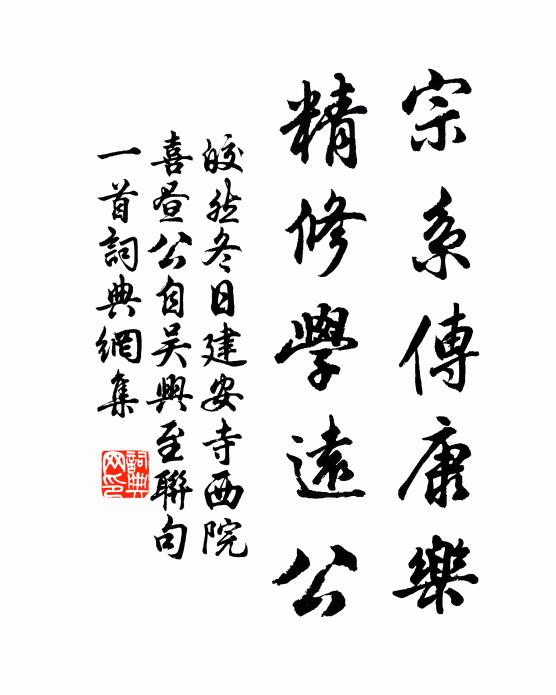 宗系傳康樂
精修學遠公
皎然冬日建安寺西院
喜晝公自吳興至聯句
一首詞典網集
詞典网印